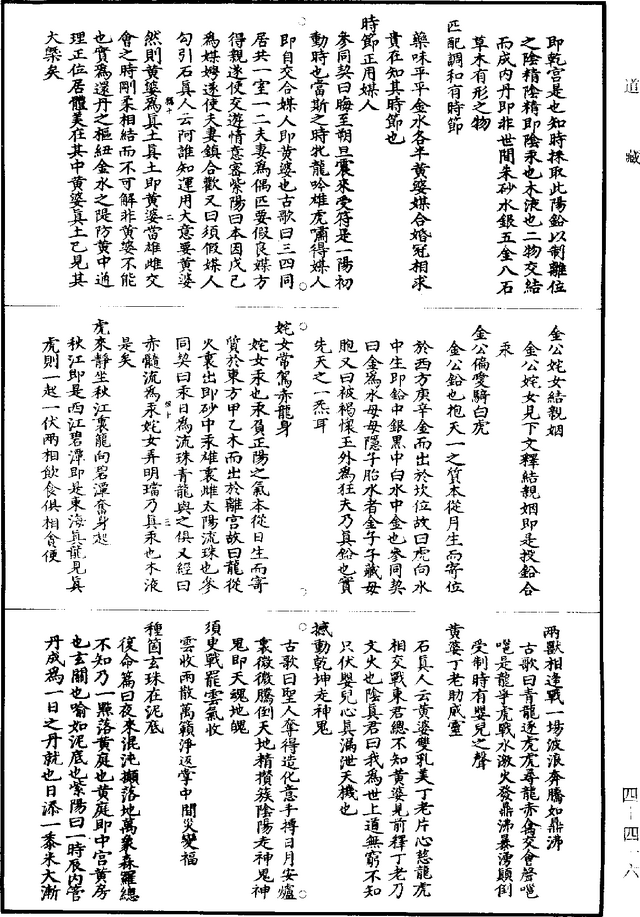 道藏
即乾宫是也知時採取此陽鉛以制離位
之陰精陰精即陰汞也木液也二物交結
而成内丹即非世間朱砂水銀五金八石
草木有形之物
匹配調和有時節
藥味平平金水各半黄婆媒合婚冠相求
貴在知其時節也
時節正用媒人
參同契曰晦至朔旦震來受符是一陽初
動時也當斯之時牝龍吟雄虎嘯得媒人
即自交合媒人即黄婆也古歌曰三四同
居共一室一二夫妻爲偶匹要假良媒方
得親遂使交遊情意審紫陽曰本因戊己
爲媒娉遂使夫妻鎮合歡又曰須假媒人
勾引石真人云阿誰知運用大意要黄婆
然則黄婆爲真土真土即黄婆當雄雌交
會之時剛柔相結而不可解非黄婆不能
也實爲還丹之樞紐金水之隄防黄中通
理正位居體美在其中黄婆真土已見其
大槩矣
金公姹女結親姻
金公姹女見下文釋結親姻即是投鉛合
汞
金公偏愛騎白虎
金公鉛也抱天一之質本從月生而寄位
於西方庚辛金而出於坎位故曰虎向水
中生即鉛中銀黒中白水中金也參同契
曰金爲水母母隱子胎水者金子子藏母
胞又曰被褐懷玉外爲狂夫乃真鉛也實
先天之一炁耳
姹女常駕赤龍身
姹女汞也汞負正陽之氣本從日生而寄
質於東方甲乙木而出於離宫故曰龍從
火裏出即砂中汞雄裏雌太陽流珠也參
同契曰汞日爲流珠青龍與之俱又經曰
赤髓流爲汞姹女弄明璫乃真汞也木液
是矣
虎來静坐秋江裏龍向碧潭奮身起
秋江即是西江碧潭即是東海真龍見真
虎則一起一伏兩相飲食俱相貪便
兩獸相逢戰一場波浪奔騰如鼎沸
古歌曰青龍逐虎虎尋龍赤禽交會聲嗈
嗈是龍爭虎戰水激火發鼎沸暴湧顛倒
受制時有嬰兒之聲
黄婆丁老助威靈
石真人云黄婆雙乳美丁老片心慈龍虎
相交戰東君總不知黄婆見前釋丁老乃
文火也陰真君曰我爲世上道無窮不知
只伏嬰兒心真漏泄天機也
撼動乾坤走神鬼
古歌曰聖人奪得造化意手搏日月安爐
裏微微騰倒天地精攢簇陰陽走神鬼神
鬼即天魂地魄
須臾戰罷雲氣收
雲收雨散萬籟淨返掌中間災變福
種箇玄珠在泥底
復命篇曰夜來混沌攧落地萬象森羅總
不知乃一點落黄庭也黄庭即中宫黄房
也玄關也喻如泥底也紫陽曰一時辰内管
丹成爲一日之丹就也日添一黍米大漸
四—四一六